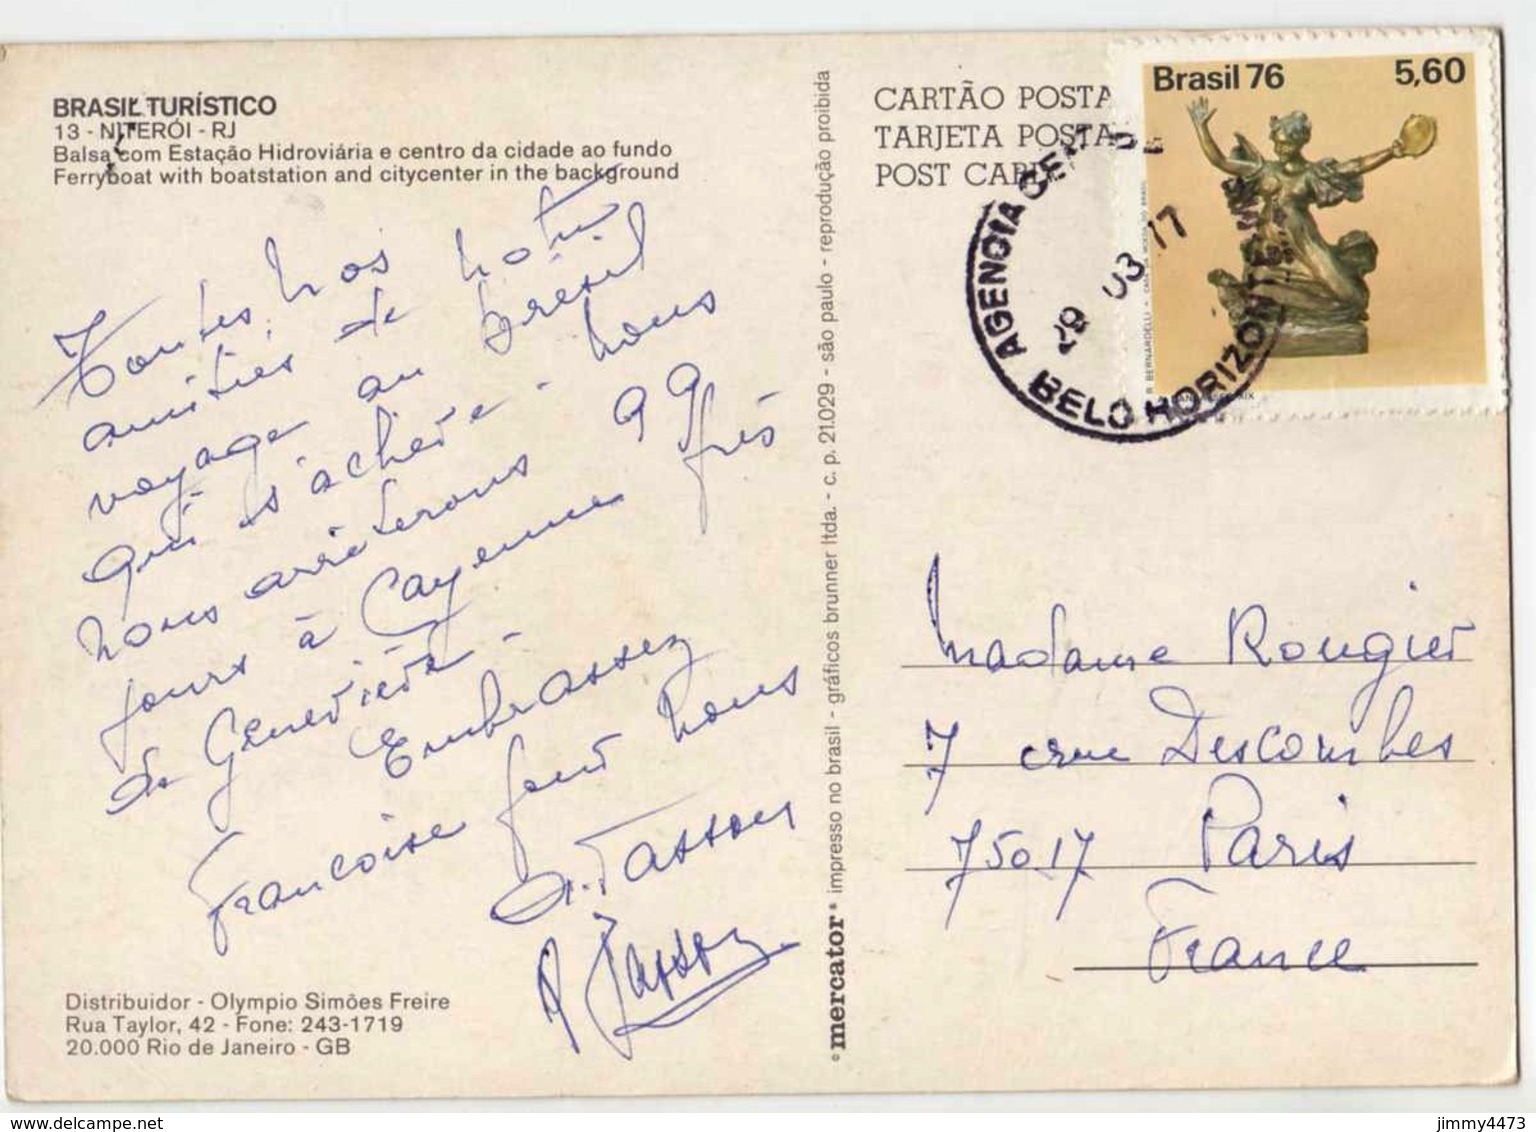 BRASIL TURÍSTICO
13 - NITERÓI - RJ
Balsa com Estação Hidroviária e centro da cidade ao fundo
Ferryboat with boatstation and citycenter in the background
Toutes nos
amitiés de notre
voyage au brésil
qui s'achève - nous
nous arrêterons qq
jours à Cayenne près
de Geneviève -
Embrassez
Françoise pour nous
Tasson
Tasson
Distribuidor - Olympio Simões Freire
Rua Taylor, 42 - Fone: 243-1719
20.000 Rio de Janeiro - GB
mercator impresso no brasil - gráficos brunner ltda. - c. p. 21.029 - são paulo - reprodução proibida
CARTÃO POSTA
TARJETA POSTA
POST CARD
Brasil 76 5,60
AGENCIA
29 03 77
BELO HORIZONTE
Madame Rougier
7 rue Descombes
75017 Paris
France
jimmy4473 - delcampe.net